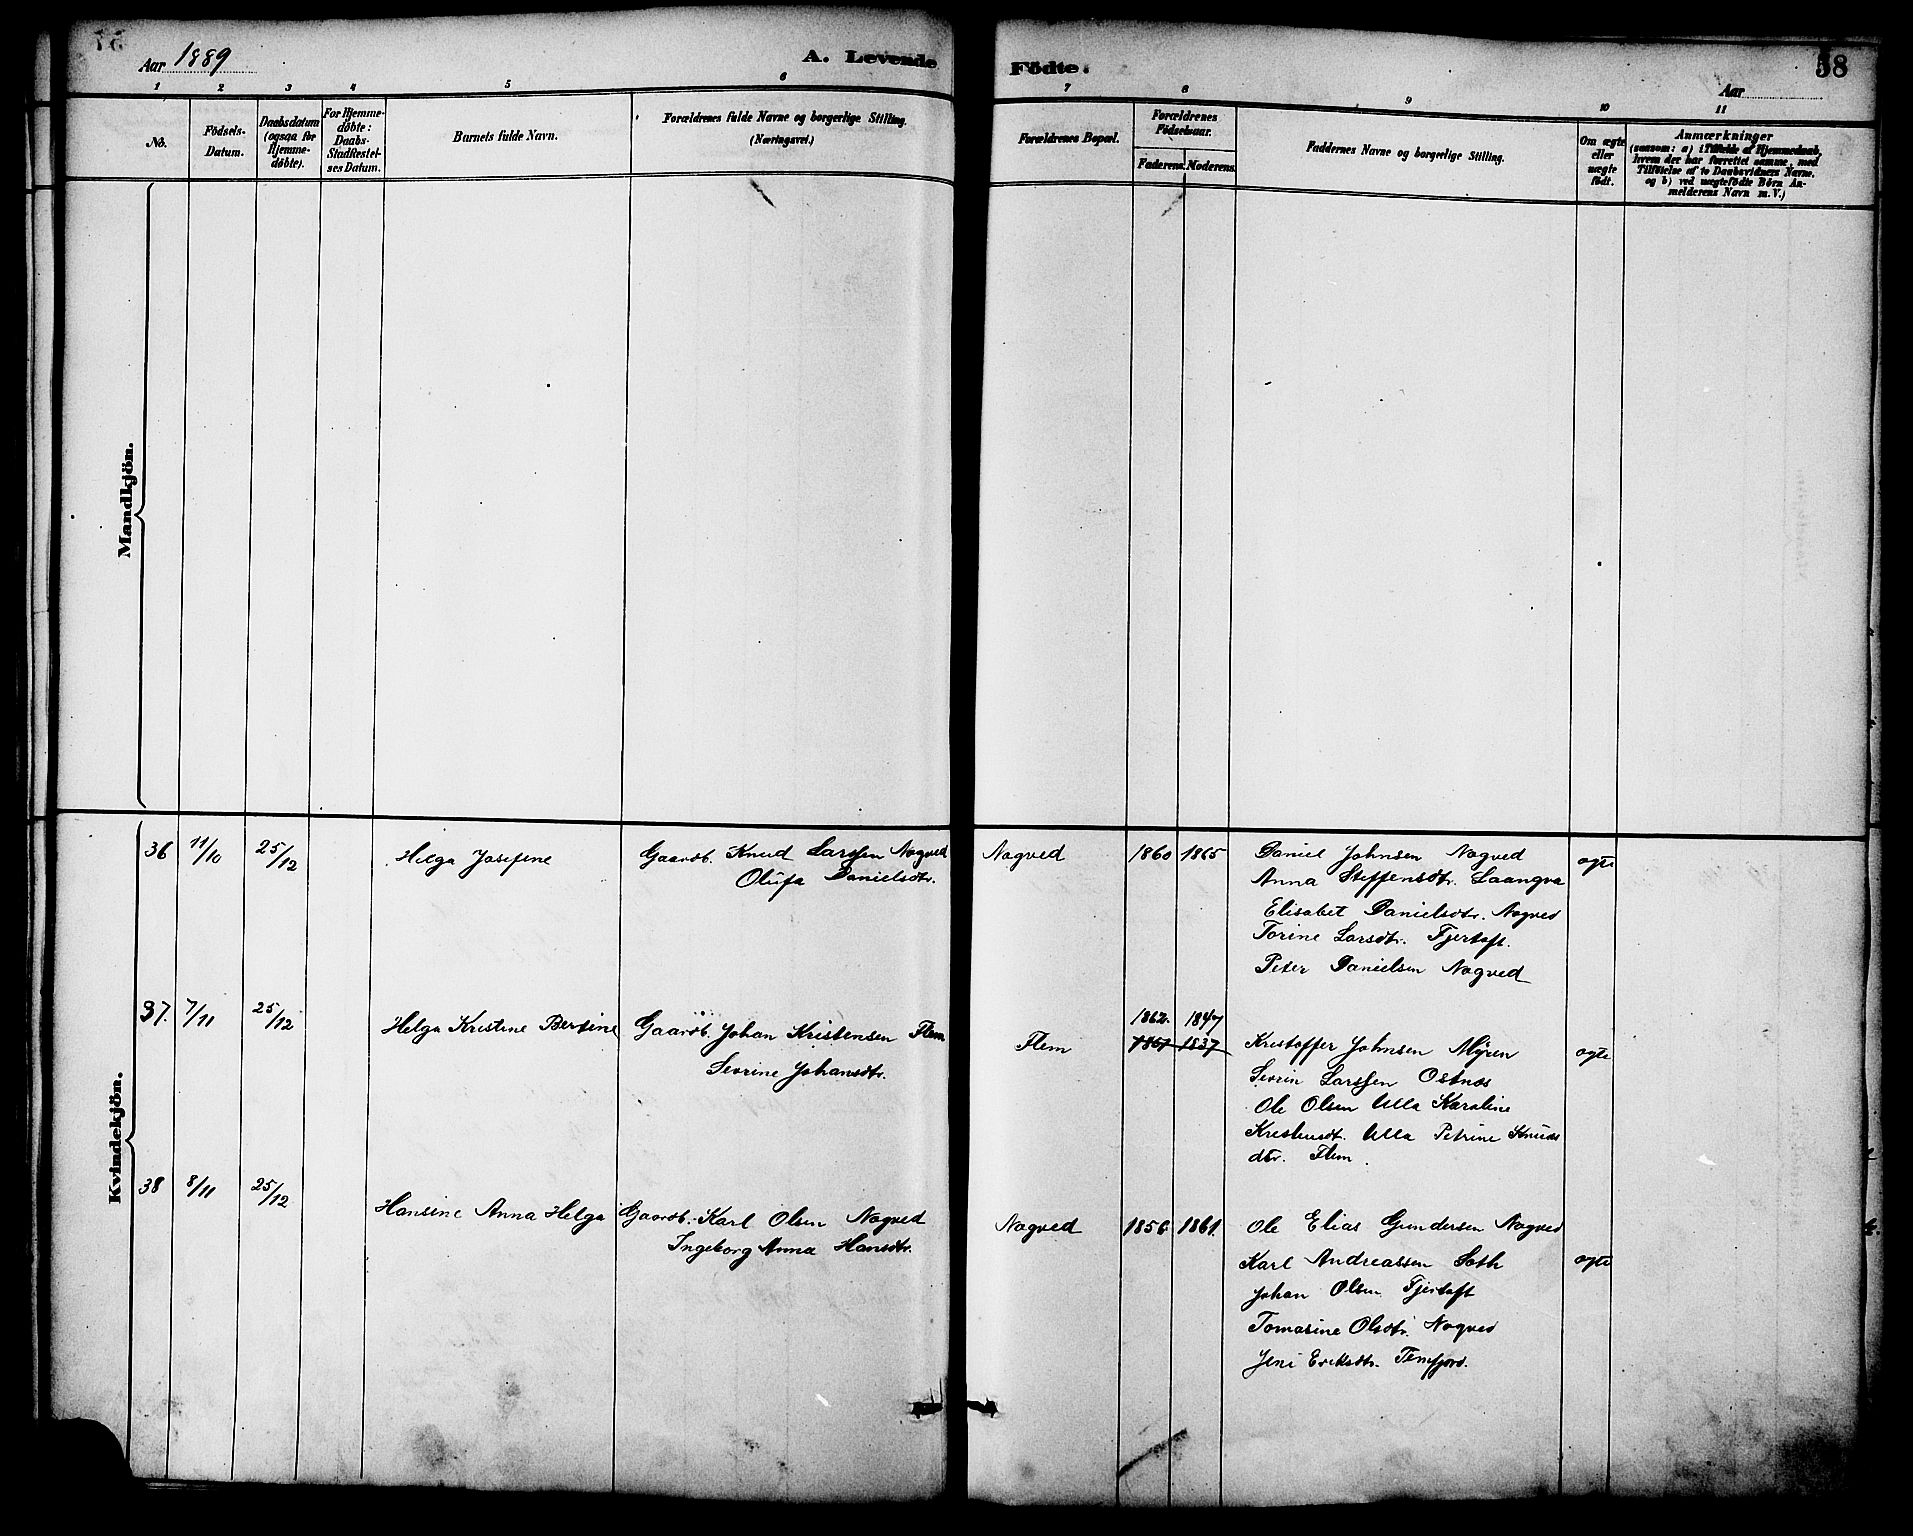 Aar 1889
A. Levende
Födte.
58
Aar
1 2 3 4 5 6 7 8 9 10 11
No.
Födsels-
Datum.
Daabsdatum
(ogsaa for
Hjemme-
døbte).
For Hjemme-
døbte:
Daabs-
Stadfestel-
ses Datum.
Barnets fulde Navn.
Forældrenes fulde Navne og borgerlige Stilling.
(Næringsvei.)
Forældrenes Bopæl.
Forældrenes
Födselsaar.
Faderens. Moderens.
Faddernes Navne og borgerlige Stilling.
Om ægte
eller
uægte
født.
Anmærkninger
(saasom: a) i Tilfælde af Hjemmedaab,
hvem der har forrettet samme, med
Tilföielse af to Daabsvidners Navne.
og b) ved uægtefödte Børn An-
melderens Navn m. V.)
Mandkjön.
Kvindekjön.
36 11/10 25/12 Helga Josefine Gaardb. Knud Larssen Nogved Nogved 1860 1865 Daniel Johnsen Nogved ogte
Olufa Danielsdtr. Anna Steffensdtr. Laangva
Elisabet Danielsdtr. Nogved
Torine Larsdtr. Fjertoft.
Peter Danielsen Nogved
37. 7/11 25/12 Helga Kristine Bertine Gaardb. Johan Kristensen Flem Flem 1862. 1847
1851 1837 Kristoffer Johnsen Myren ogte
Sevrine Johansdtr. Sevrin Larssen Ostnos
Ole Olsen Ulla Karoline
Kristensdt. Ulla Petrine Knuds
dtr. Flem.
38 8/11 25/12 Hansine Anna Helga Gaardb. Karl Olsen Nogved Nogved 1856 1861. Ole Elias Gundersen Nogved
Ingeborg Anna Hansdtr. Karl Andreassen Soth ogte
Johan Olsen Fjertoft
Tomasine Olsdtr. Nogved
Jeni Eriksdtr. Tenfjord.